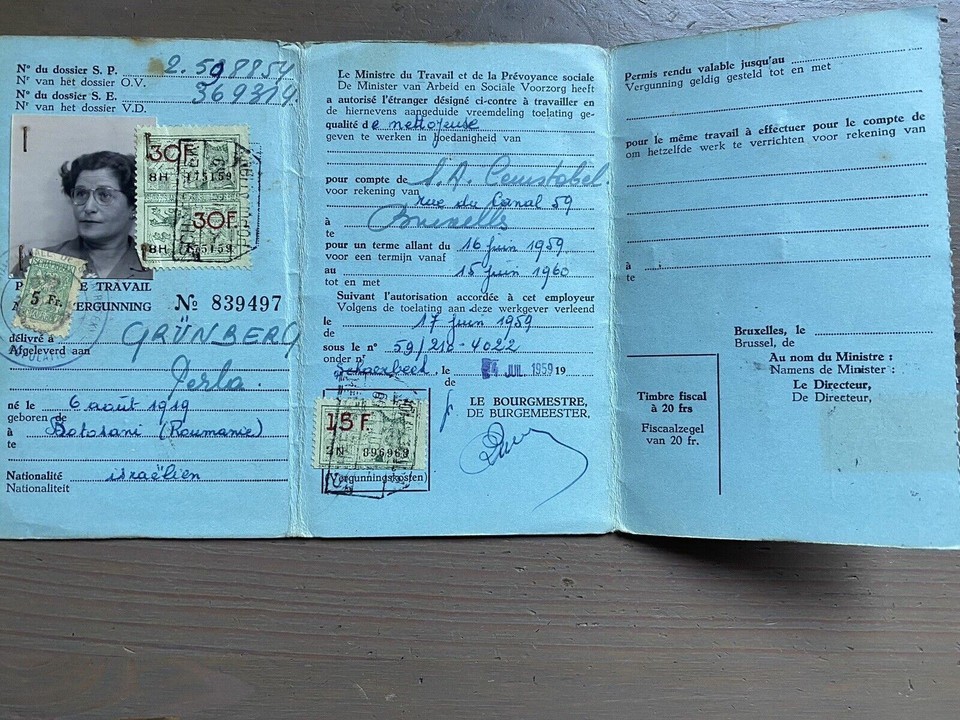 Nº du dossier S. P. 2.598854
Nr van het dossier O.V.
Nº du dossier S. E. 369314
Nr van het dossier V.D.
30F.
8H 175159
30F.
8H 175159
5 Fr.
TRAVAIL
VERGUNNING Nº 839497
délivré à GRÜNBERG
Afgeleverd aan
Perla.
né le 6 août 1919
geboren de
à Botosani (Roumanie)
te
Nationalité israëlien
Nationaliteit
Le Ministre du Travail et de la Prévoyance sociale
De Minister van Arbeid en Sociale Voorzorg heeft
a autorisé l'étranger désigné ci-contre à travailler en
de hiernevens aangeduide vreemdeling toelating ge-
qualité de nettoyeuse
geven te werken in hoedanigheid van
pour compte de S.A.
voor rekening van rue du Canal 59
à Bruxelles
te
pour un terme allant du 16 juin 1959
voor een termijn vanaf
au 15 juin 1960
tot en met
Suivant l'autorisation accordée à cet employeur
Volgens de toelating aan deze werkgever verleend
le 17 juin 1959
de
sous le nº 59/218-4022
onder nº
Schaerbeek, le JUIL 1959 19
de
15 F.
2N 896969
(Vergunningskosten)
LE BOURGMESTRE,
DE BURGEMEESTER,
Permis rendu valable jusqu'au
Vergunning geldig gesteld tot en met
pour le même travail à effectuer pour le compte de
om hetzelfde werk te verrichten voor rekening van
à
te
Bruxelles, le
Brussel, de
Au nom du Ministre :
Namens de Minister :
Le Directeur,
De Directeur,
Timbre fiscal
à 20 frs
Fiscaalzegel
van 20 fr.